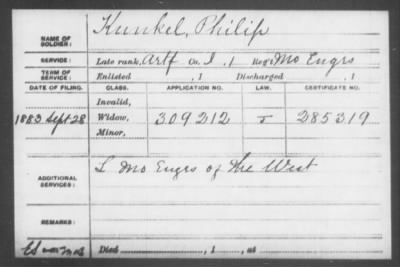 NAME OF SOLDIER: Kunkel, Philip
SERVICE: Late rank, Artf Co. I, 1 Reg't Mo Engrs
TERM OF SERVICE: Enlisted , 1 Discharged , 1
DATE OF FILING. CLASS. APPLICATION NO. LAW. CERTIFICATE NO.
Invalid,
1883 Sept 28 Widow, 309212 285319
Minor,
ADDITIONAL SERVICES: L Mo Engrs of the West
REMARKS:
Died , 1 , at